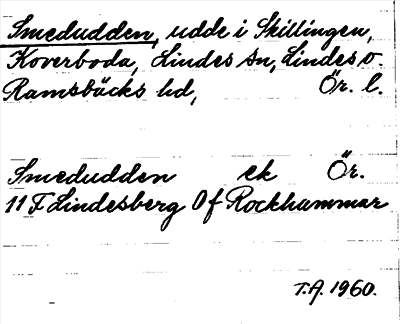 Smedudden, udde i Skillingen,
Koverboda, Lindes sn, Lindes o.
Ramsbäcks hd, Ör. l.
Smedudden ek Ör.
11 F Lindesberg Of Rockhammar
T.A. 1960.